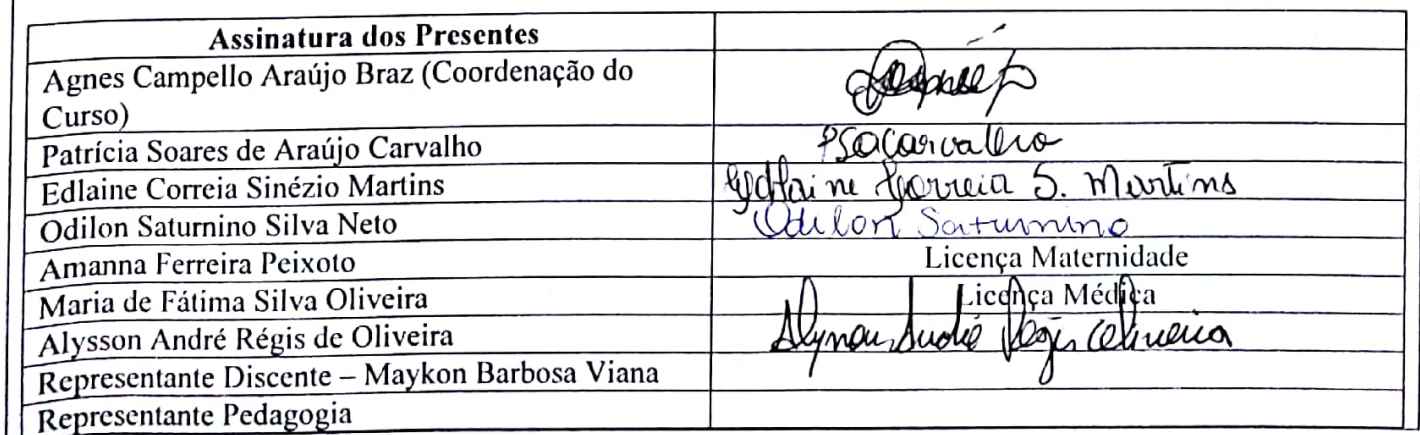 Assinatura dos Presentes
Agnes Campello Araújo Braz (Coordenação do
Curso)
Patrícia Soares de Araújo Carvalho
PSACarvalho
Edlaine Correia Sinézio Martins
Edlaine Correia S. Martins
Odilon Saturnino Silva Neto
Odilon Saturnino
Amanna Ferreira Peixoto
Licença Maternidade
Maria de Fátima Silva Oliveira
Licença Médica
Alysson André Régis de Oliveira
Alysson André Régis Oliveira
Representante Discente – Maykon Barbosa Viana
Representante Pedagogia